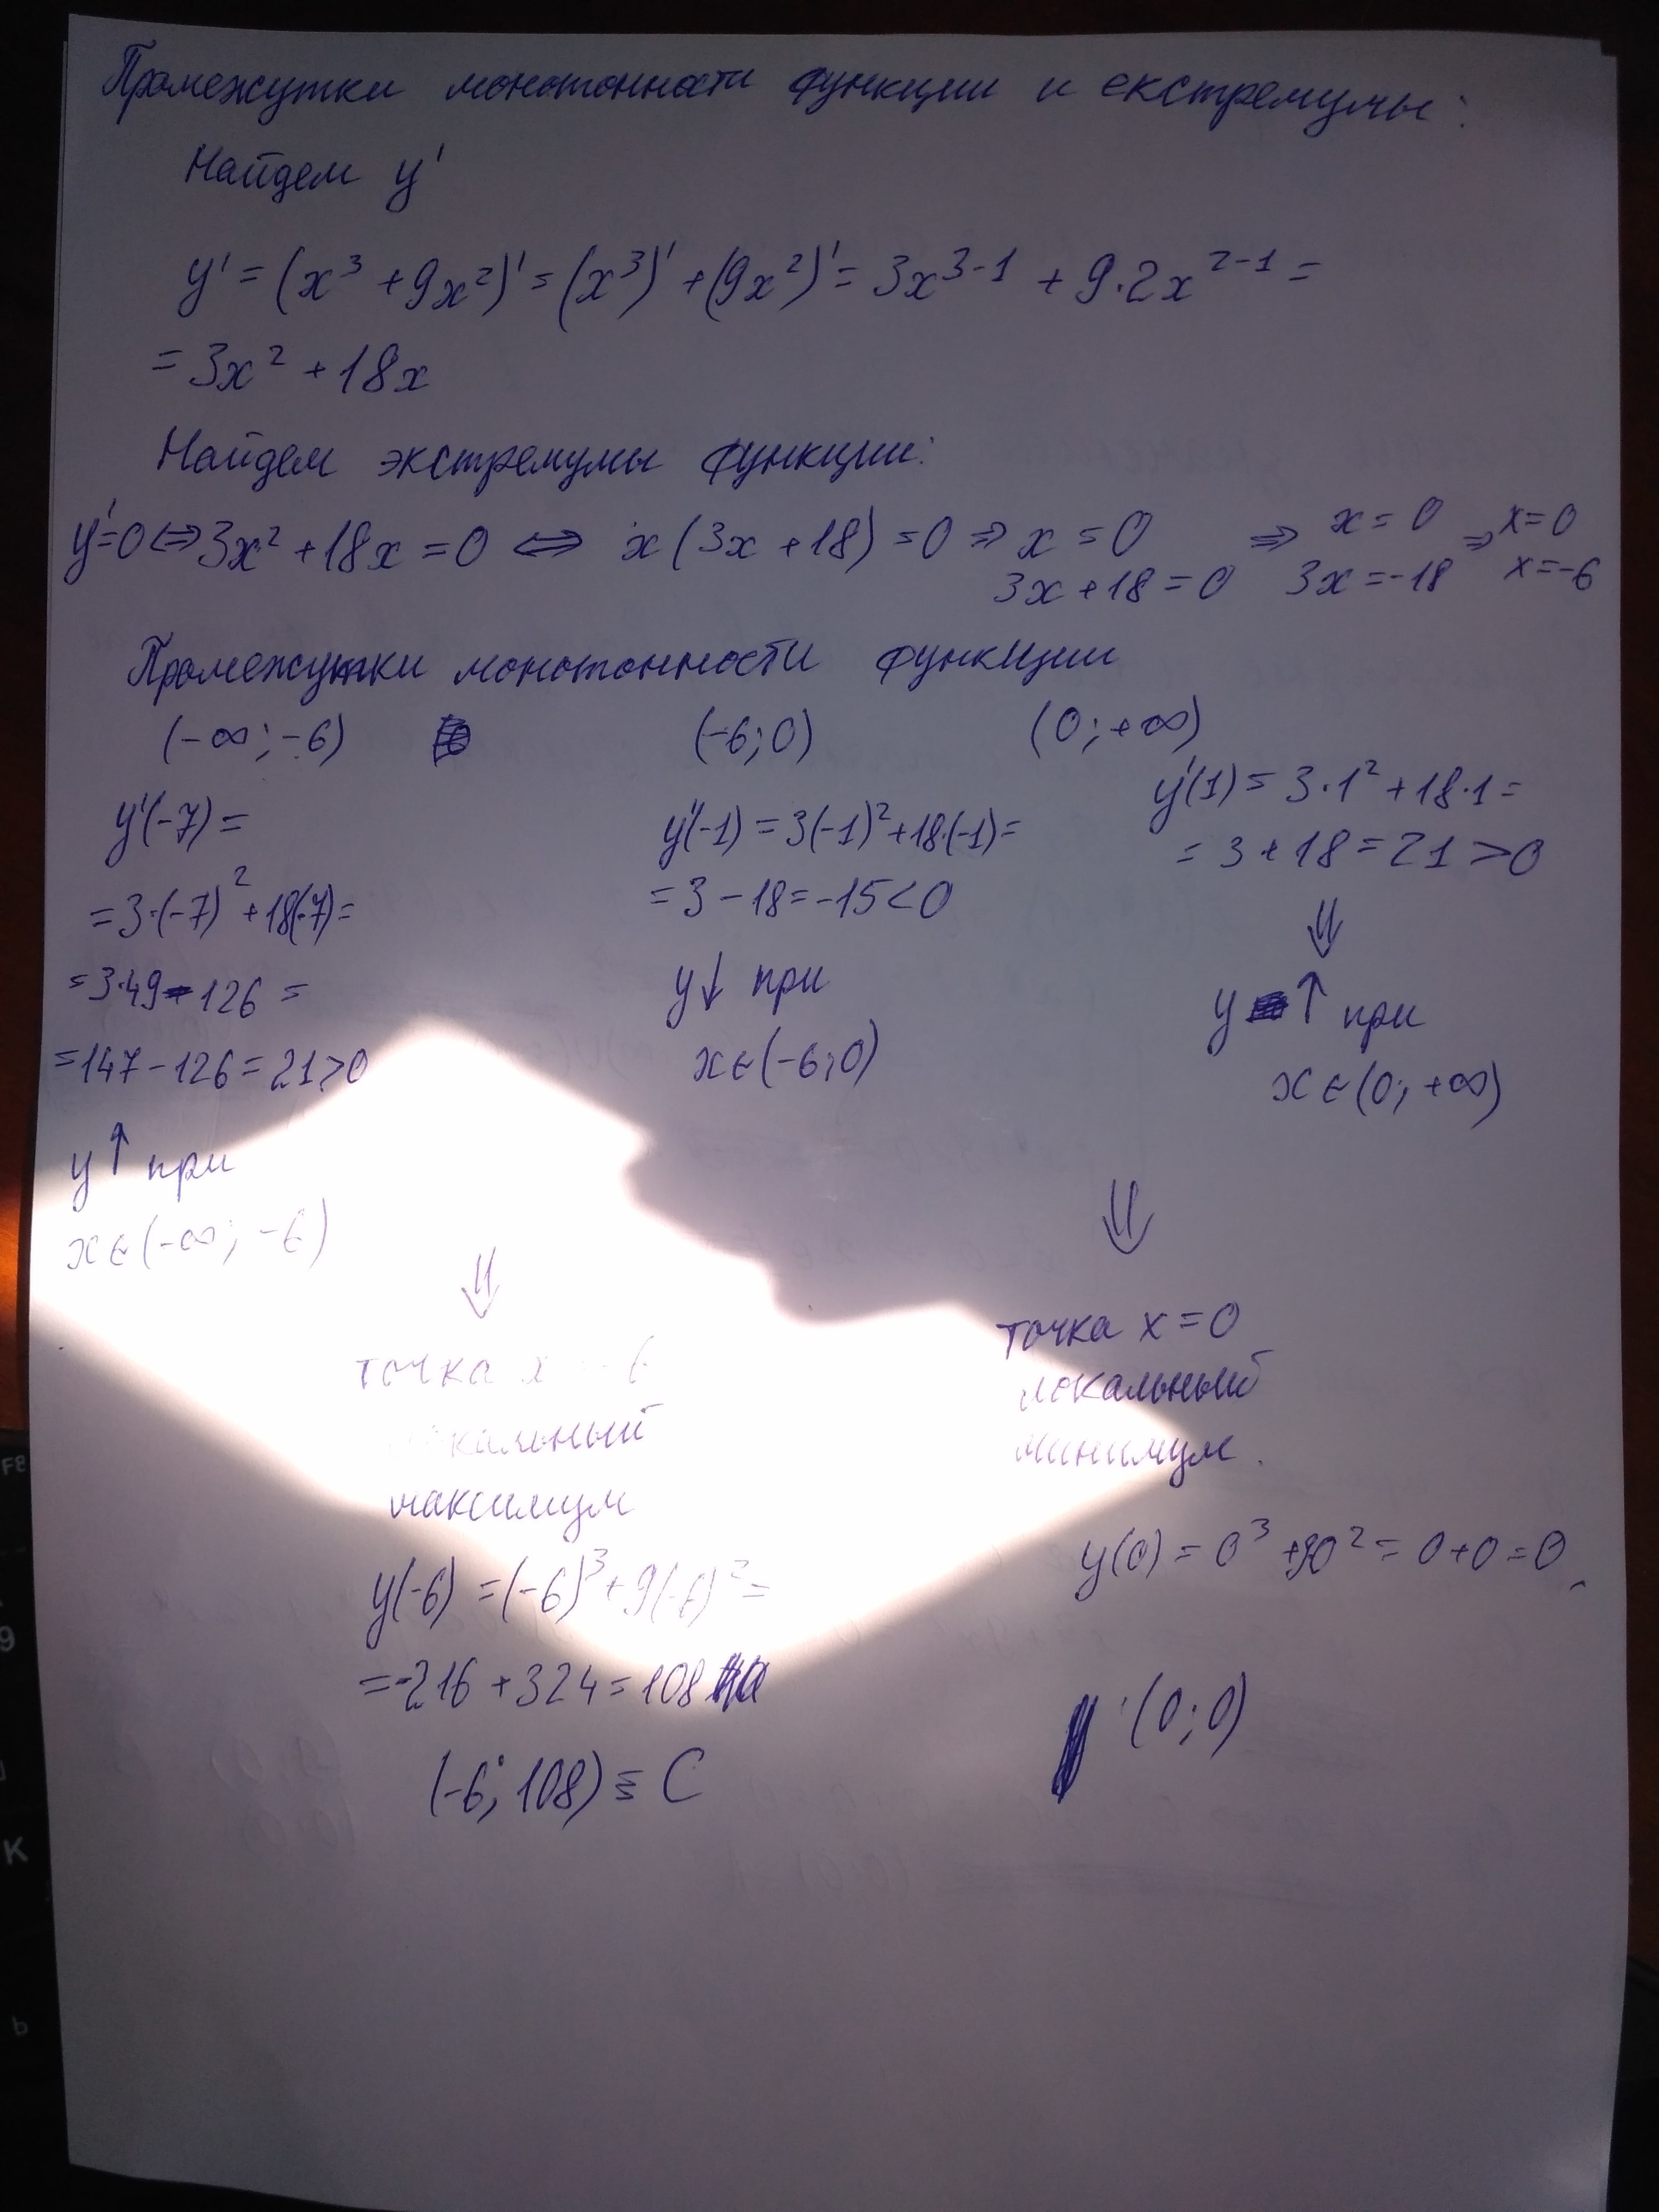 Промежутки монотонности функции и екстремумы:
Найдем y'
y' = (x³ + 9x²)' = (x³)' + (9x²)' = 3x³⁻¹ + 9·2x²⁻¹ =
= 3x² + 18x
Найдем экстремумы функции:
y'=0 ⇔ 3x² + 18x = 0 ⇔ x(3x + 18) = 0 ⇒ x = 0 ⇒ x = 0 ⇒ x = 0
3x + 18 = 0 3x = -18 x = -6
Промежутки монотонности функции
(-∞; -6) (-6; 0) (0; +∞)
y'(-7) =
= 3·(-7)² + 18(-7) =
= 3·49 - 126 =
= 147 - 126 = 21 > 0
y↑ при
x ∈ (-∞; -6)
y'(-1) = 3(-1)² + 18·(-1) =
= 3 - 18 = -15 < 0
y↓ при
x ∈ (-6; 0)
y'(1) = 3·1² + 18·1 =
= 3 + 18 = 21 > 0
⇓
y ↑ при
x ∈ (0; +∞)
⇓
точка x -6
кальный
максимум
y(-6) = (-6)³ + 9(-6)² =
= -216 + 324 = 108
(-6; 108) ≡ C
⇓
точка x = 0
локальный
минимум.
y(0) = 0³ + 90² = 0 + 0 = 0
(0; 0)
F8
9
K
b